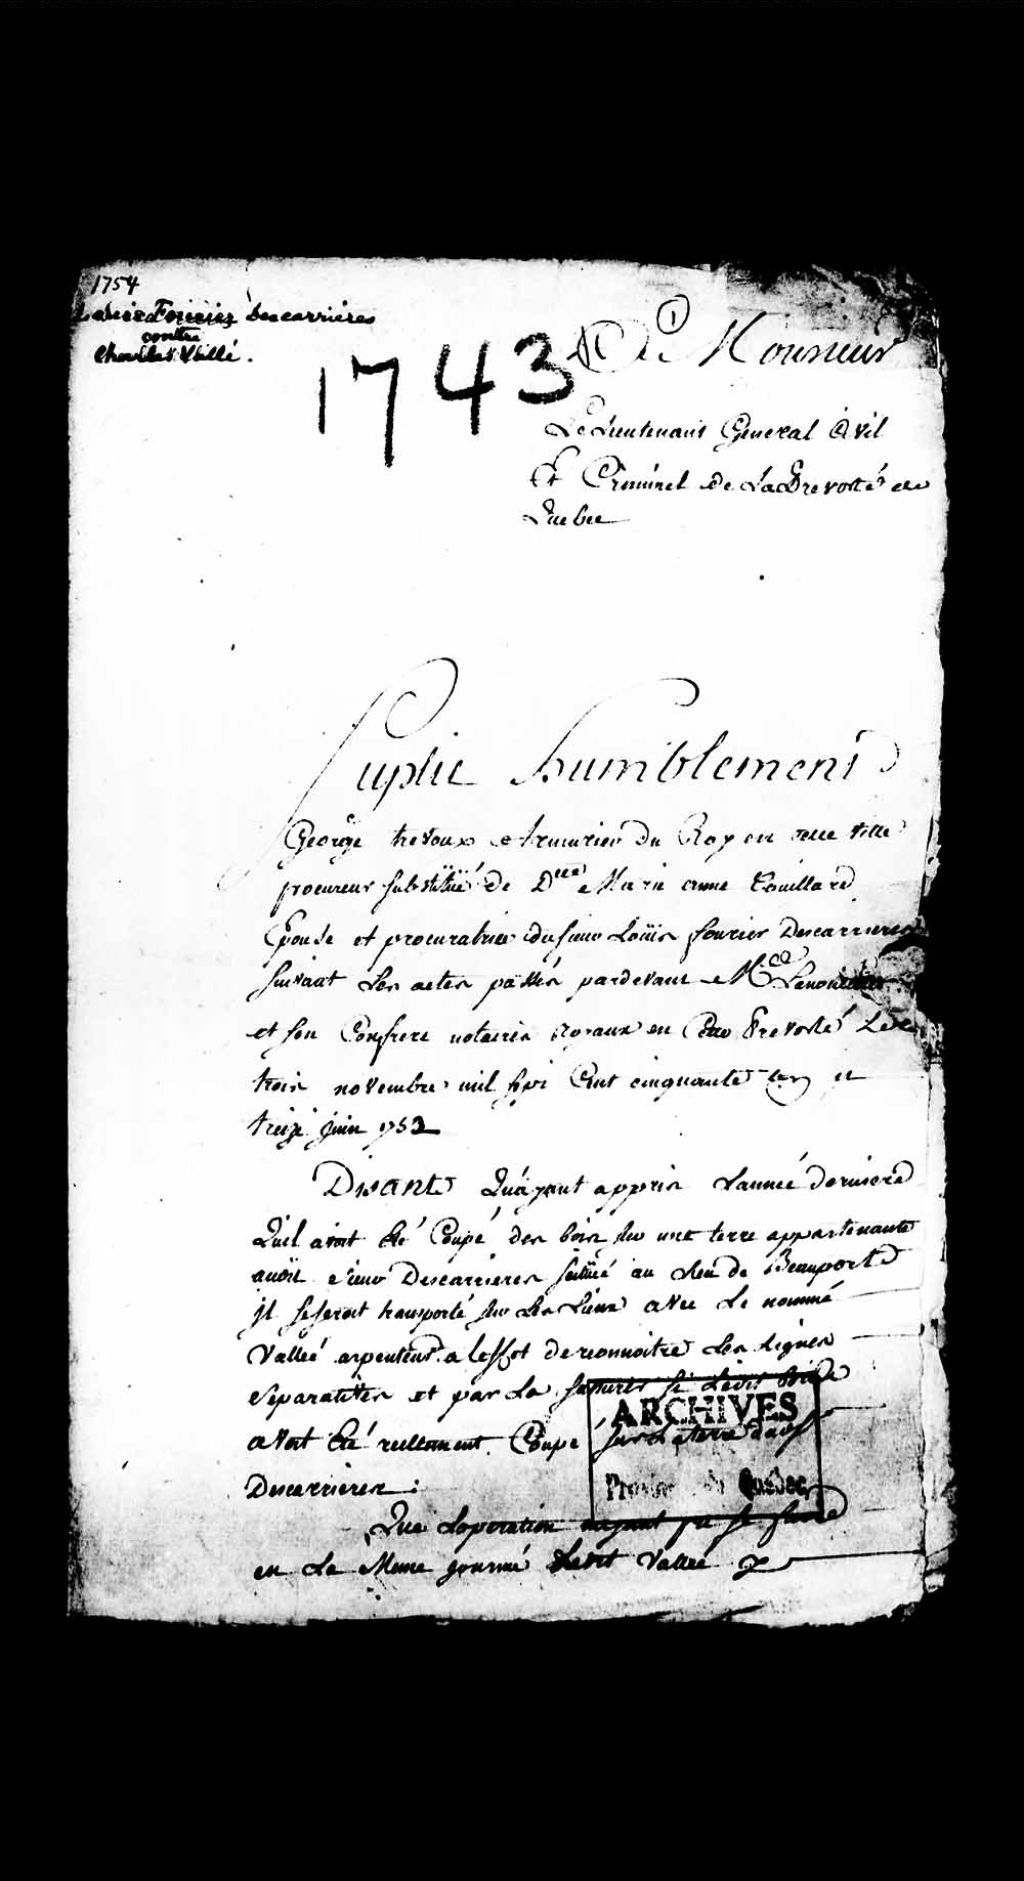 1754
Descarrières
contre
Vallé.
1743
①
A Monsieur
Le Lieutenant General Civil
Et Criminel de La Prevosté de
Quebec
Suplie humblement
George trevoux Armurier du Roy en cette ville
procureur substitüé de D.elle Marie anne Couillard
Epouse et procuratrice du sieur Loüis fourier Descarrieres
suivant les actes passés pardevant M.e
et son Confrere notaires Royaux en Cette Prevosté Le
trois novembre mil sept Cent cinquante et
treize juin 1753
Disant Quayant appris Lannée derniere
Quil avoit été Coupé des bois sur une terre appartenante
audit sieur Descarrieres scitüé au lieu de Beauport
jl se seroit transporté sur les Lieux avec le nommé
Vallée arpenteur a leffet de reconnoitre les lignes
separatives et par la si Ledit bois
avoit été reellement Coupé sur la terre dudit
Descarrieres :
Que Loperation nayant pu se faire
en la Meme journé Ledit Vallée
ARCHIVES
Province de Québec